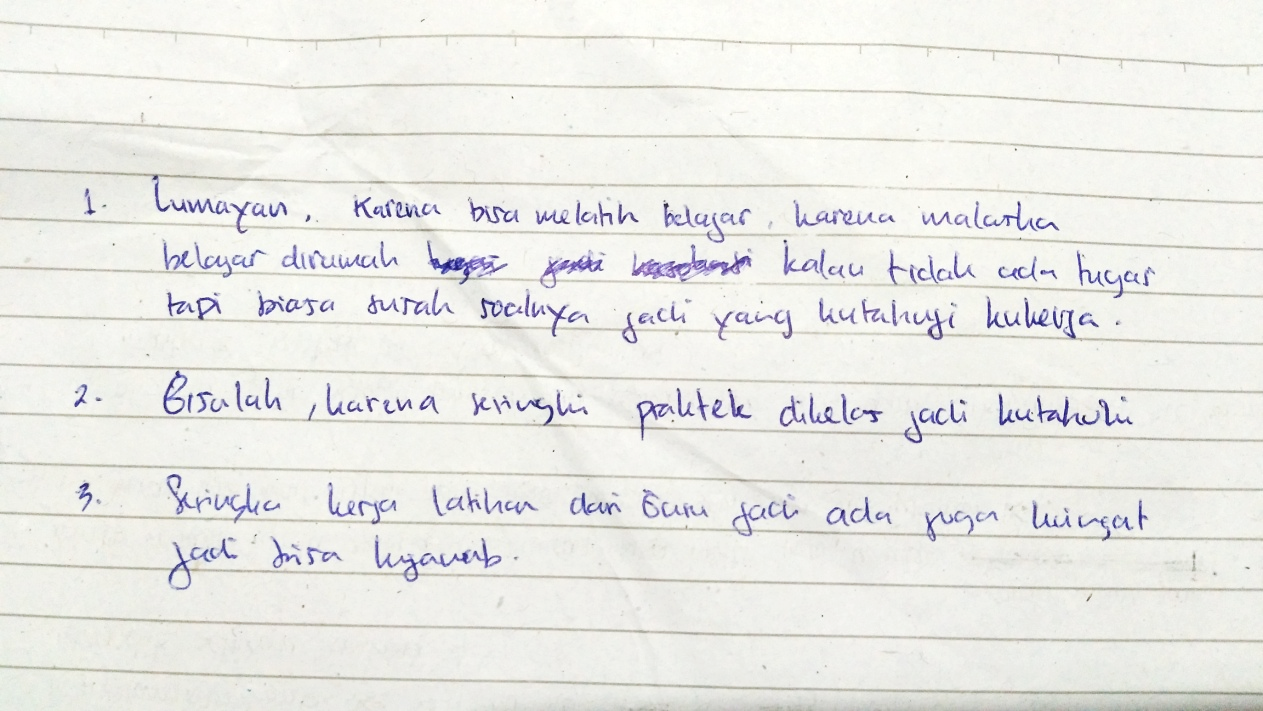 1. Lumayan, Karena bisa melatih belajar, karena malaska
belajar dirumah kalau tidak ada tugas
tapi biasa susah soalnya jadi yang kutahuji kukerja.
2. Bisalah, karena seringki praktek dikelas jadi kutahumi
3. Seringka kerja latihan dari Guru jadi ada juga kuingat
jadi bisa kujawab.